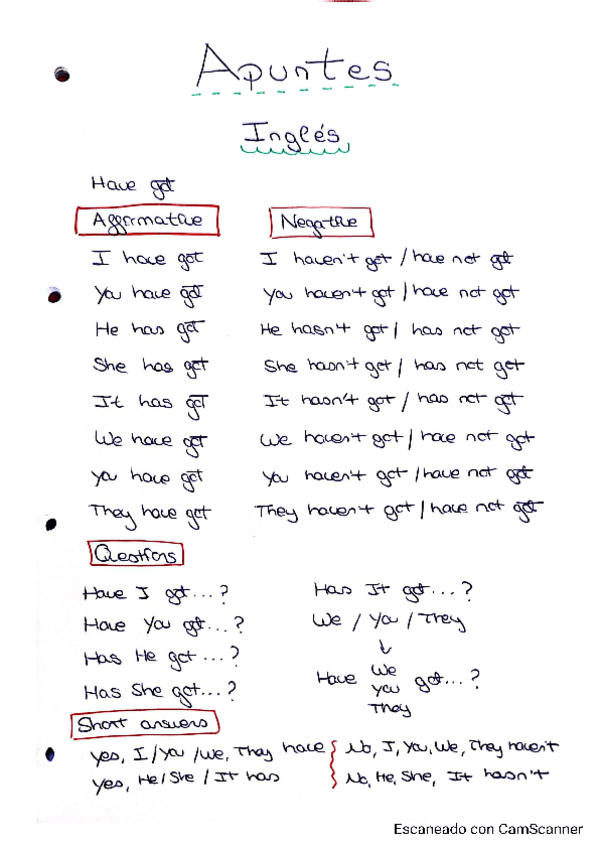 Apuntes
Inglés
Have got
Affirmative
Negative
I have got
I haven't got / have not got
You have got
You haven't got / have not got
He has got
He hasn't got / has not got
She has got
She hasn't got / has not got
It has got
It hasn't got / has not got
We have got
We haven't got / have not got
you have got
You haven't got / have not got
They have got
They haven't got / have not got
Questions
Have I got...?
Have You got...?
Has He got...?
Has She got...?
Has It got...?
We / You / They
↓
Have We you They got...?
Short answers
Yes, I / You / We, They have
No, I, You, We, They haven't
Yes, He / She / It has
No, He, She, It hasn't
Escaneado con CamScanner